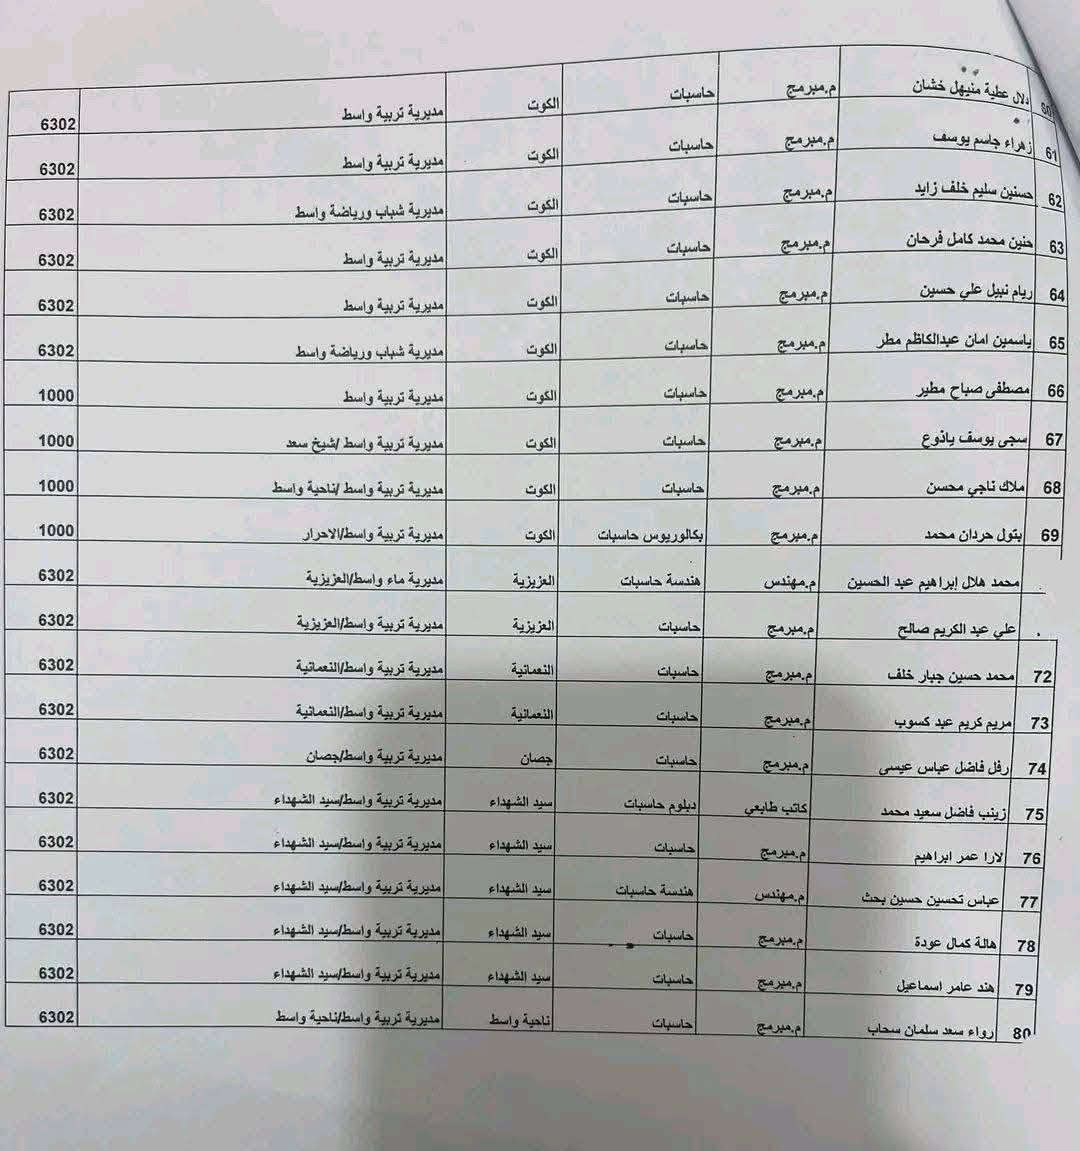 60 دلال عطية منيهل خشان م.مبرمج حاسبات الكوت مديرية تربية واسط 6302
61 زهراء جاسم يوسف م.مبرمج حاسبات الكوت مديرية تربية واسط 6302
62 حسنين سليم خلف زايد م.مبرمج حاسبات الكوت مديرية شباب ورياضة واسط 6302
63 حنين محمد كامل فرحان م.مبرمج حاسبات الكوت مديرية تربية واسط 6302
64 ريام نبيل علي حسين م.مبرمج حاسبات الكوت مديرية تربية واسط 6302
65 ياسمين امان عبدالكاظم مطر م.مبرمج حاسبات الكوت مديرية شباب ورياضة واسط 6302
66 مصطفى صباح مطير م.مبرمج حاسبات الكوت مديرية تربية واسط 1000
67 سجى يوسف ياذوع م.مبرمج حاسبات الكوت مديرية تربية واسط /شيخ سعد 1000
68 ملاك ناجي محسن م.مبرمج حاسبات الكوت مديرية تربية واسط /ناحية واسط 1000
69 بتول حردان محمد م.مبرمج بكالوريوس حاسبات الكوت مديرية تربية واسط/الاحرار 1000
محمد هلال إبراهيم عبد الحسين م.مهندس هندسة حاسبات العزيزية مديرية ماء واسط/العزيزية 6302
علي عبد الكريم صالح م.مبرمج حاسبات العزيزية مديرية تربية واسط/العزيزية 6302
72 محمد حسين جبار خلف م.مبرمج حاسبات النعمانية مديرية تربية واسط/النعمانية 6302
73 مريم كريم عبد كسوب م.مبرمج حاسبات النعمانية مديرية تربية واسط/النعمانية 6302
74 رفل فاضل عباس عيسى م.مبرمج حاسبات جصان مديرية تربية واسط/جصان 6302
75 زينب فاضل سعيد محمد كاتب طابعي دبلوم حاسبات سيد الشهداء مديرية تربية واسط/سيد الشهداء 6302
76 لارا عمر ابراهيم م.مبرمج حاسبات سيد الشهداء مديرية تربية واسط/سيد الشهداء 6302
77 عباس تحسين حسين بحث م.مهندس هندسة حاسبات سيد الشهداء مديرية تربية واسط/سيد الشهداء 6302
78 هالة كمال عودة م.مبرمج حاسبات سيد الشهداء مديرية تربية واسط/سيد الشهداء 6302
79 هند عامر اسماعيل م.مبرمج حاسبات سيد الشهداء مديرية تربية واسط/سيد الشهداء 6302
80 رواء سعد سلمان سحاب م.مبرمج حاسبات ناحية واسط مديرية تربية واسط/ناحية واسط 6302